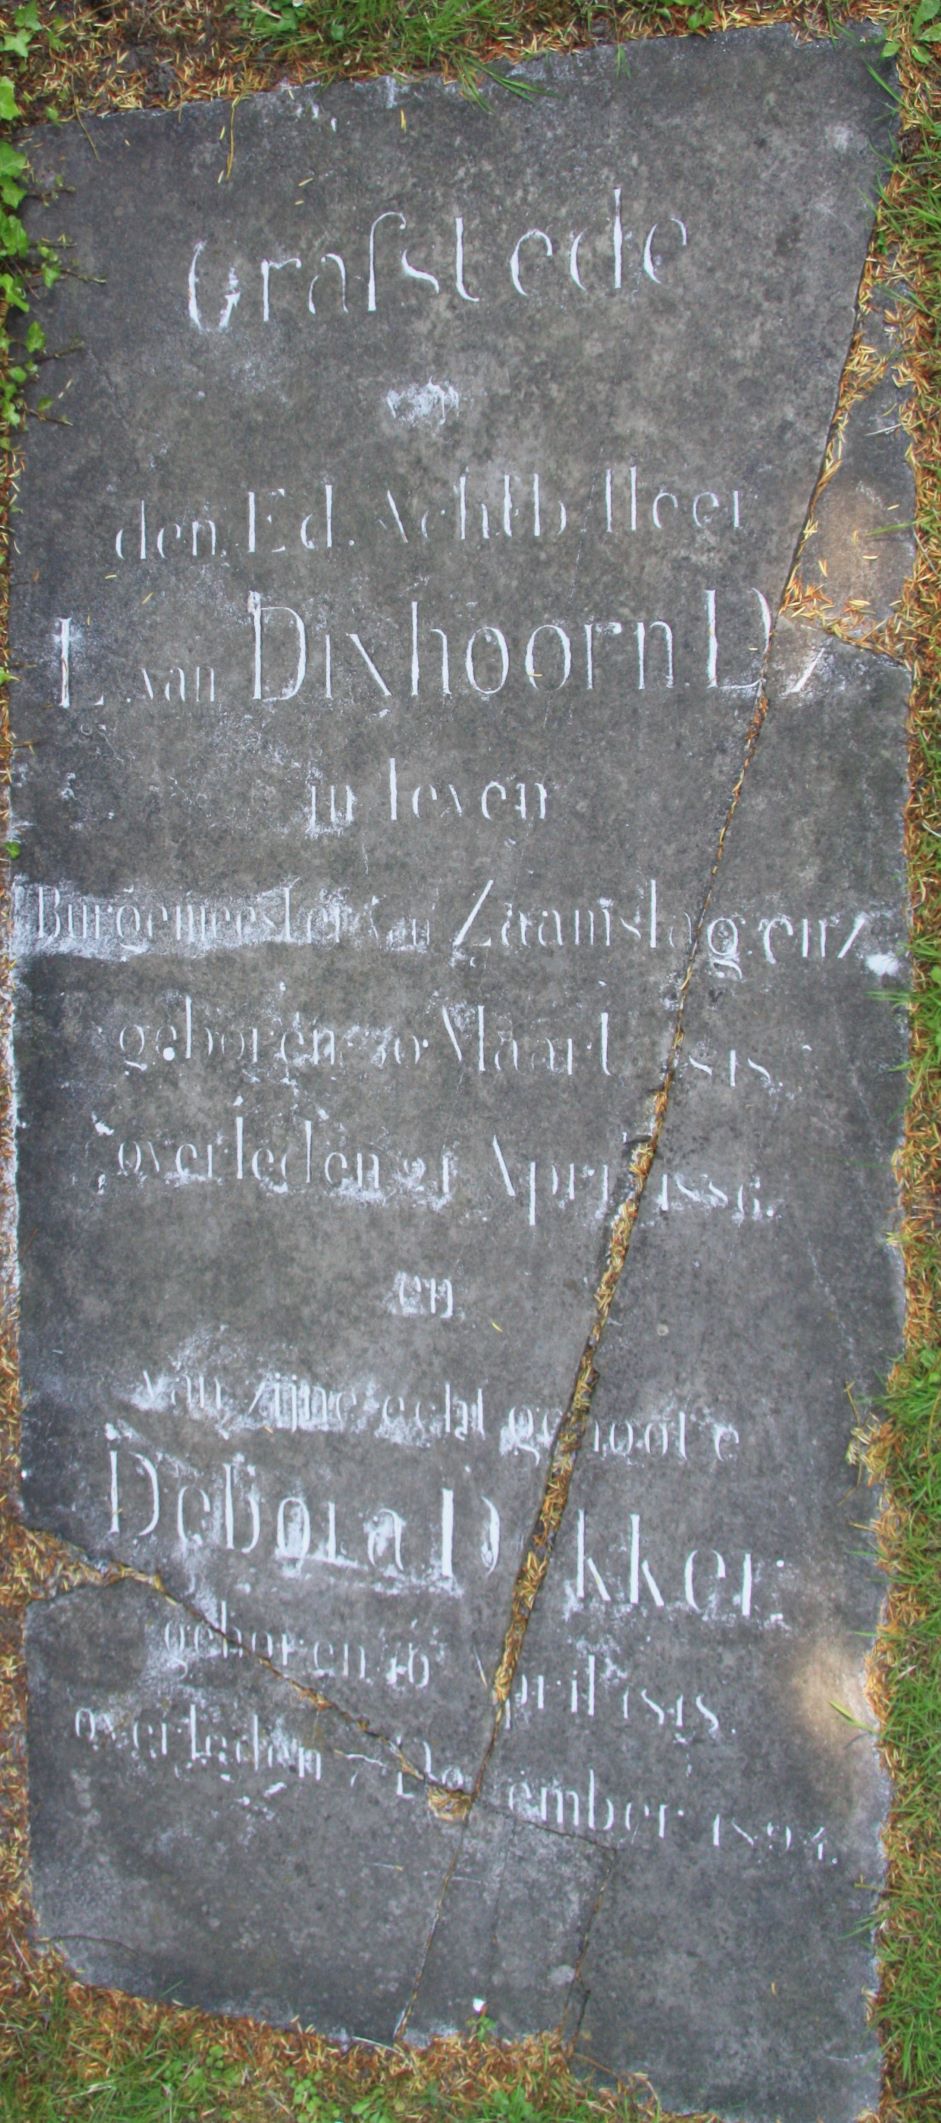 Grafstede
van
den Ed. Achtb. Heer
L. van Dixhoorn. Dz
in leven
Burgemeester van Zaamslag. enz
geboren 30 Maart
overleden 21 April 1886.
en
van zijne echtgenoote
Debora Dekker.
geboren 16 April 1818.
overleden December 1894.